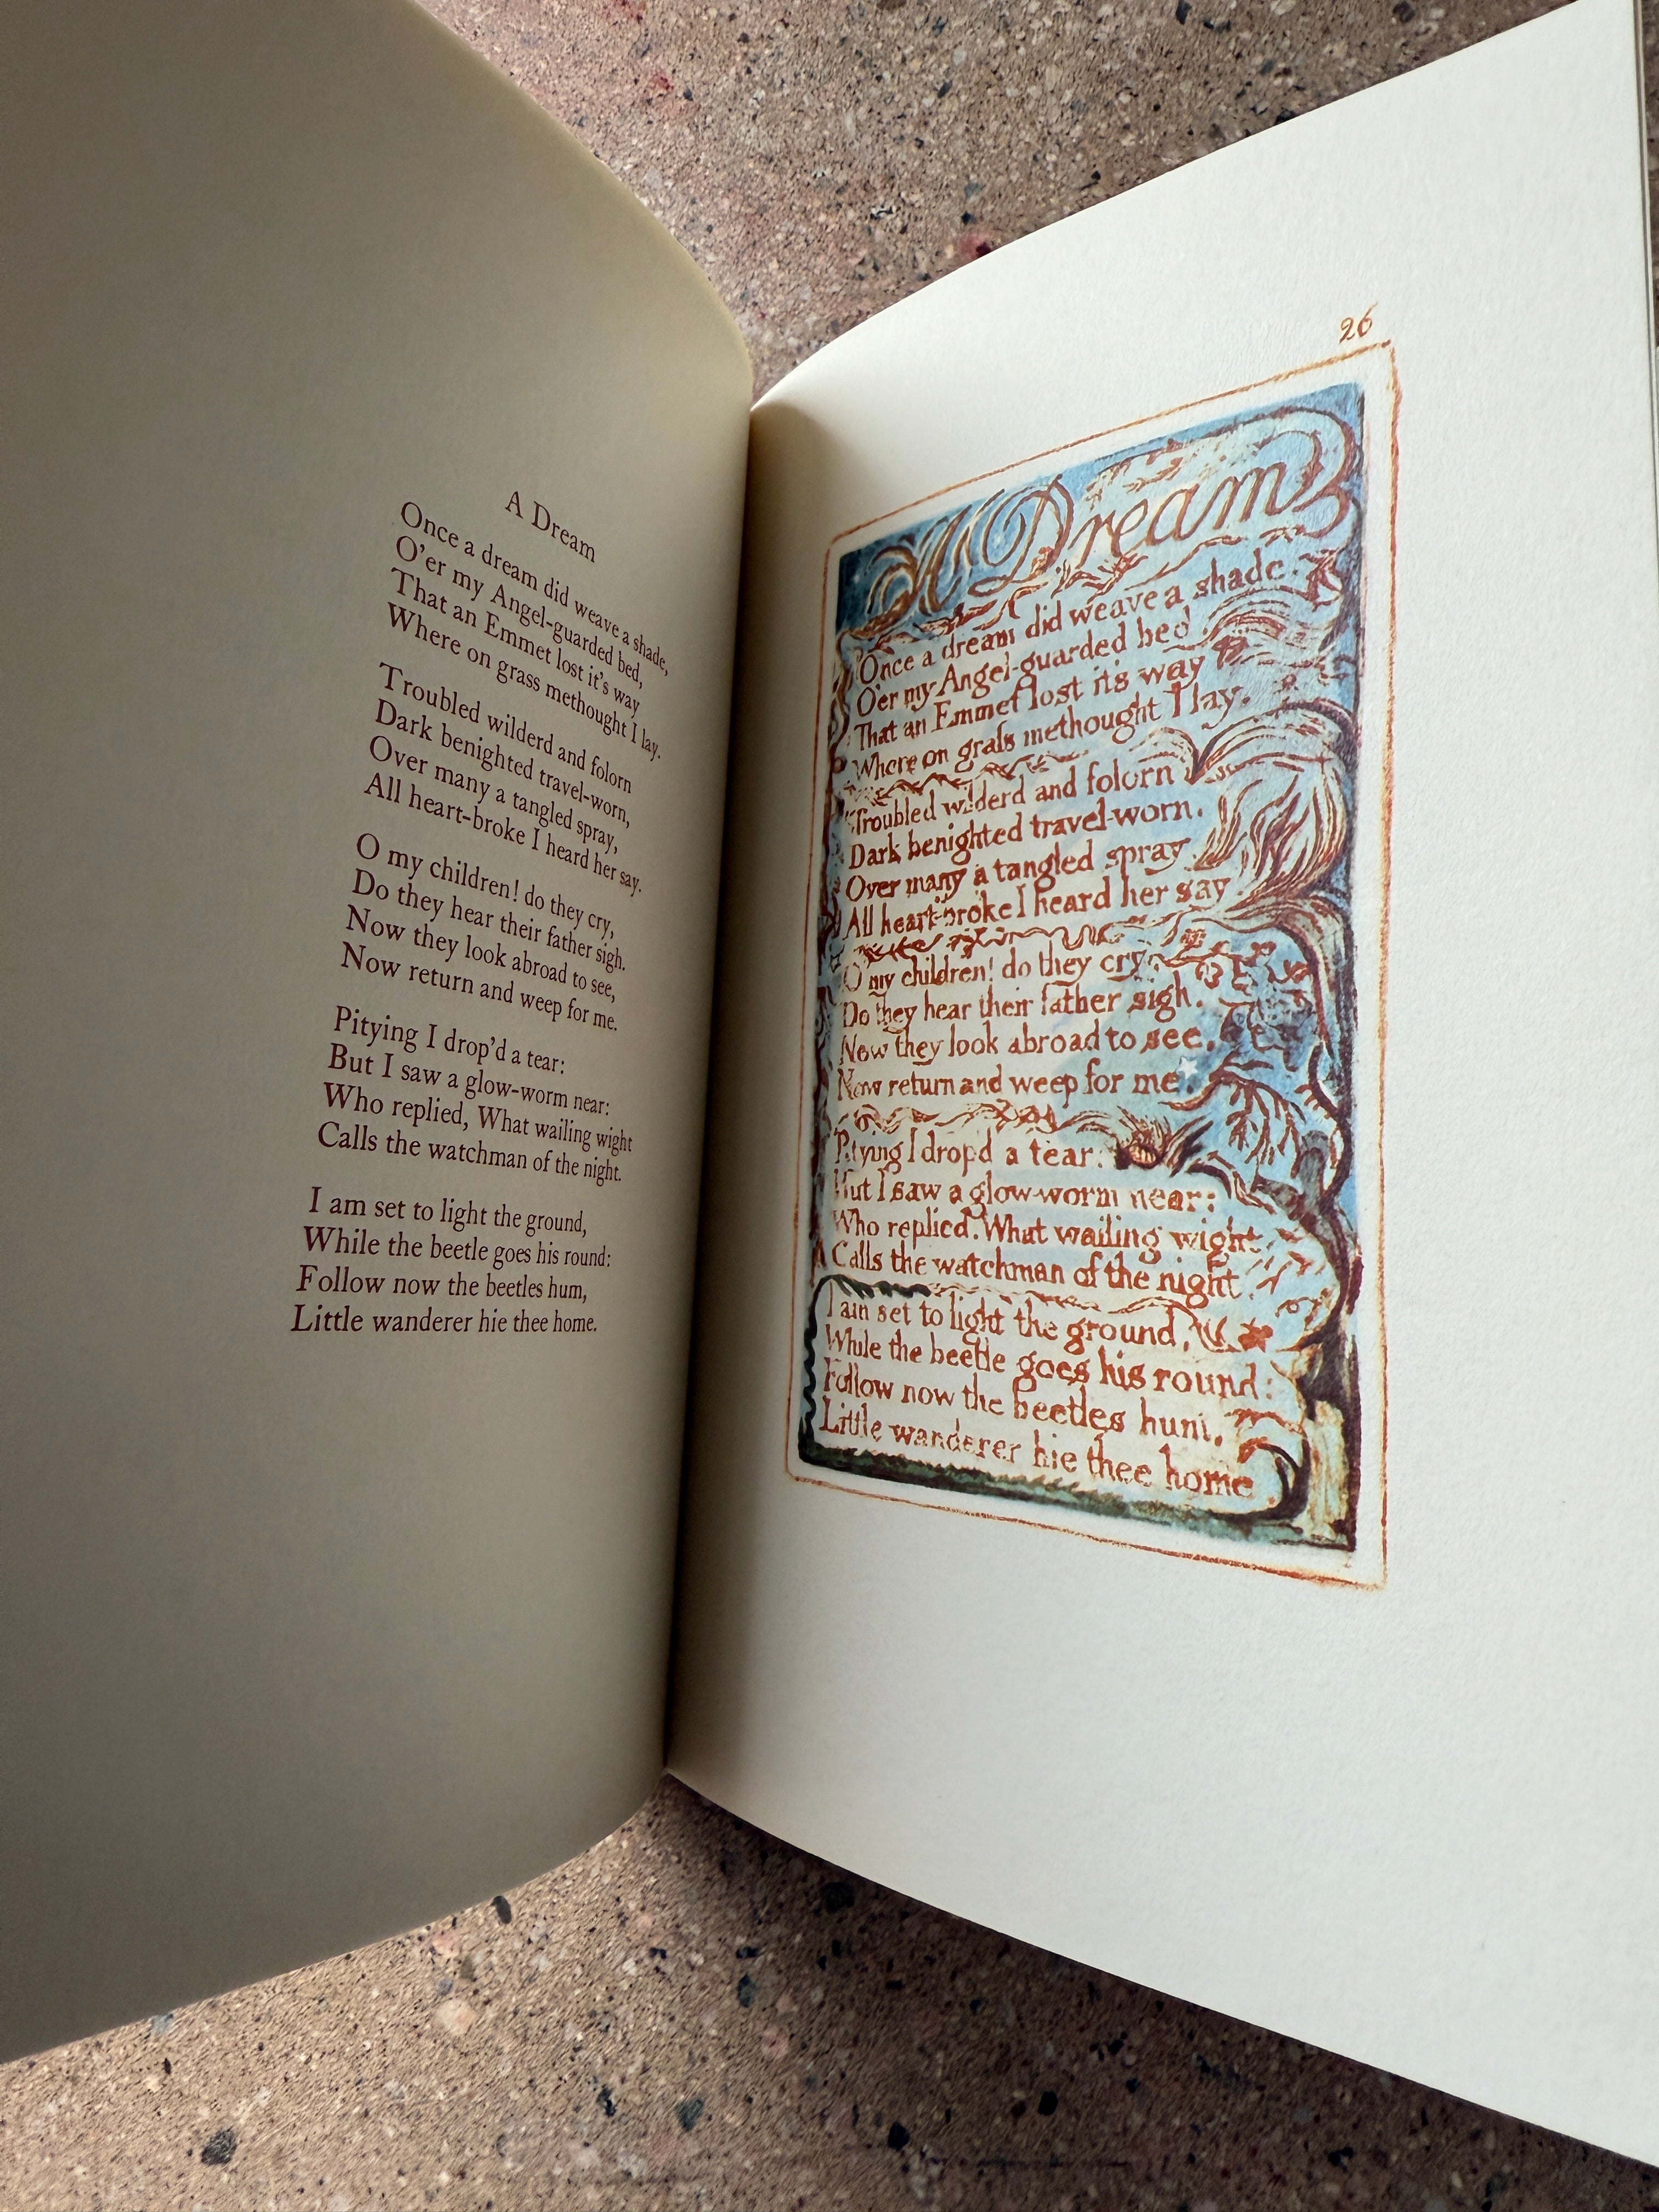 A Dream
Once a dream did weave a shade,
O'er my Angel-guarded bed,
That an Emmet lost it's way
Where on grass methought I lay.
Troubled wilderd and folorn
Dark benighted travel-worn,
Over many a tangled spray,
All heart-broke I heard her say.
O my children! do they cry,
Do they hear their father sigh.
Now they look abroad to see,
Now return and weep for me.
Pitying I drop'd a tear:
But I saw a glow-worm near:
Who replied, What wailing wight
Calls the watchman of the night.
I am set to light the ground,
While the beetle goes his round:
Follow now the beetles hum,
Little wanderer hie thee home.
26
A Dream
Once a dream did weave a shade,
O'er my Angel-guarded bed,
That an Emmet lost it's way
Where on grass methought I lay.
Troubled wilderd and folorn
Dark benighted travel-worn,
Over many a tangled spray
All heart-broke I heard her say.
O my children! do they cry,
Do they hear their father sigh.
Now they look abroad to see,
Now return and weep for me.
Pitying I drop'd a tear:
But I saw a glow-worm near:
Who replied. What wailing wight
Calls the watchman of the night.
I am set to light the ground,
While the beetle goes his round:
Follow now the beetles hum,
Little wanderer hie thee home.